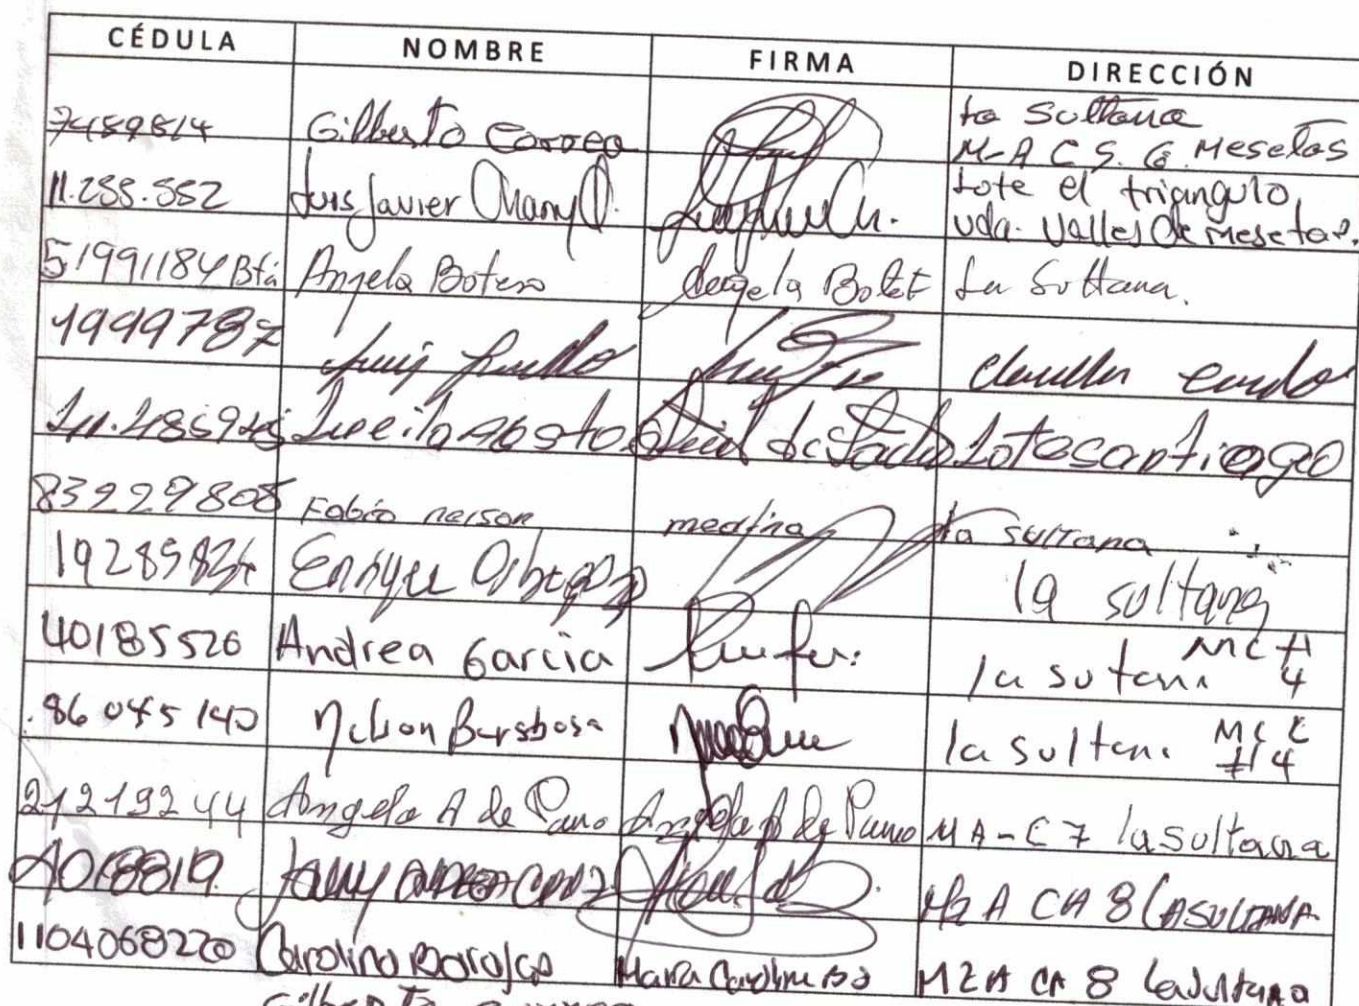 CÉDULA NOMBRE FIRMA DIRECCIÓN
7459814 Gilberto Correa la Sultana
M-A C S. 6. Mesetas
11.255.552 Luis Javier lote el triangulo,
vda. Valles de mesetas.
51991184 Btá Angela Botero Angela Botet La Sultana.
4999787 Luis
Lucila Lote santiago
83229808 Fabio nerson medina la sultana
19285824 Enrique la sultana
40185526 Andrea Garcia la sutana MC A
4
86 045 140 Nelson Barsbosa la sultana MC C
#4
21219244 Angela A de Pano Angela A de Pano MA-C 7 la sultana
MZ A CA 8 LA SULTANA
1104068220 Carolina Barajas Maria Carolina Ba MZ A CA 8 la sultana
Gilberto